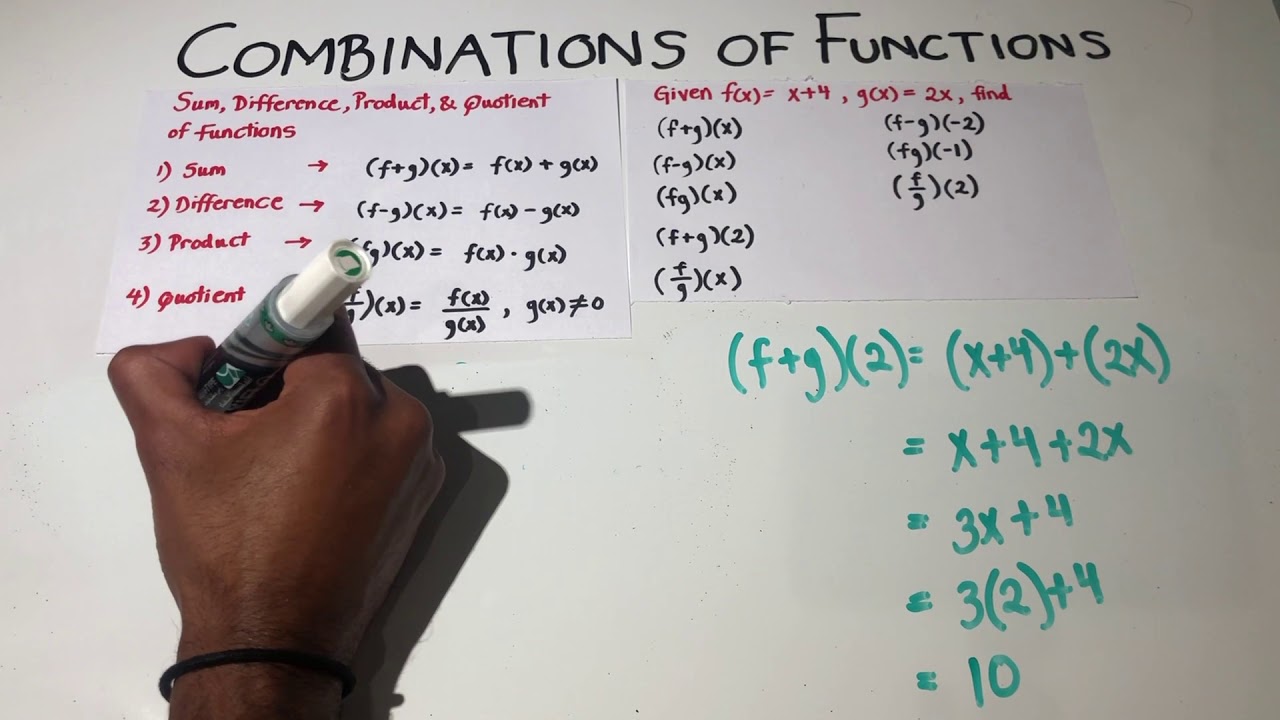 COMBINATIONS OF FUNCTIONS
Sum, Difference, Product, & Quotient
of Functions
1) Sum → (f+g)(x) = f(x) + g(x)
2) Difference → (f-g)(x) = f(x) - g(x)
3) Product → fg)(x) = f(x) · g(x)
4) Quotient f/g)(x) = f(x)/g(x) , g(x) ≠ 0
Given f(x) = x+4 , g(x) = 2x, find
(f+g)(x)
(f-g)(x)
(fg)(x)
(f+g)(2)
(f/g)(x)
(f-g)(-2)
(fg)(-1)
(f/g)(2)
(f+g)(2) = (x+4)+(2x)
= x+4+2x
= 3x+4
= 3(2)+4
= 10